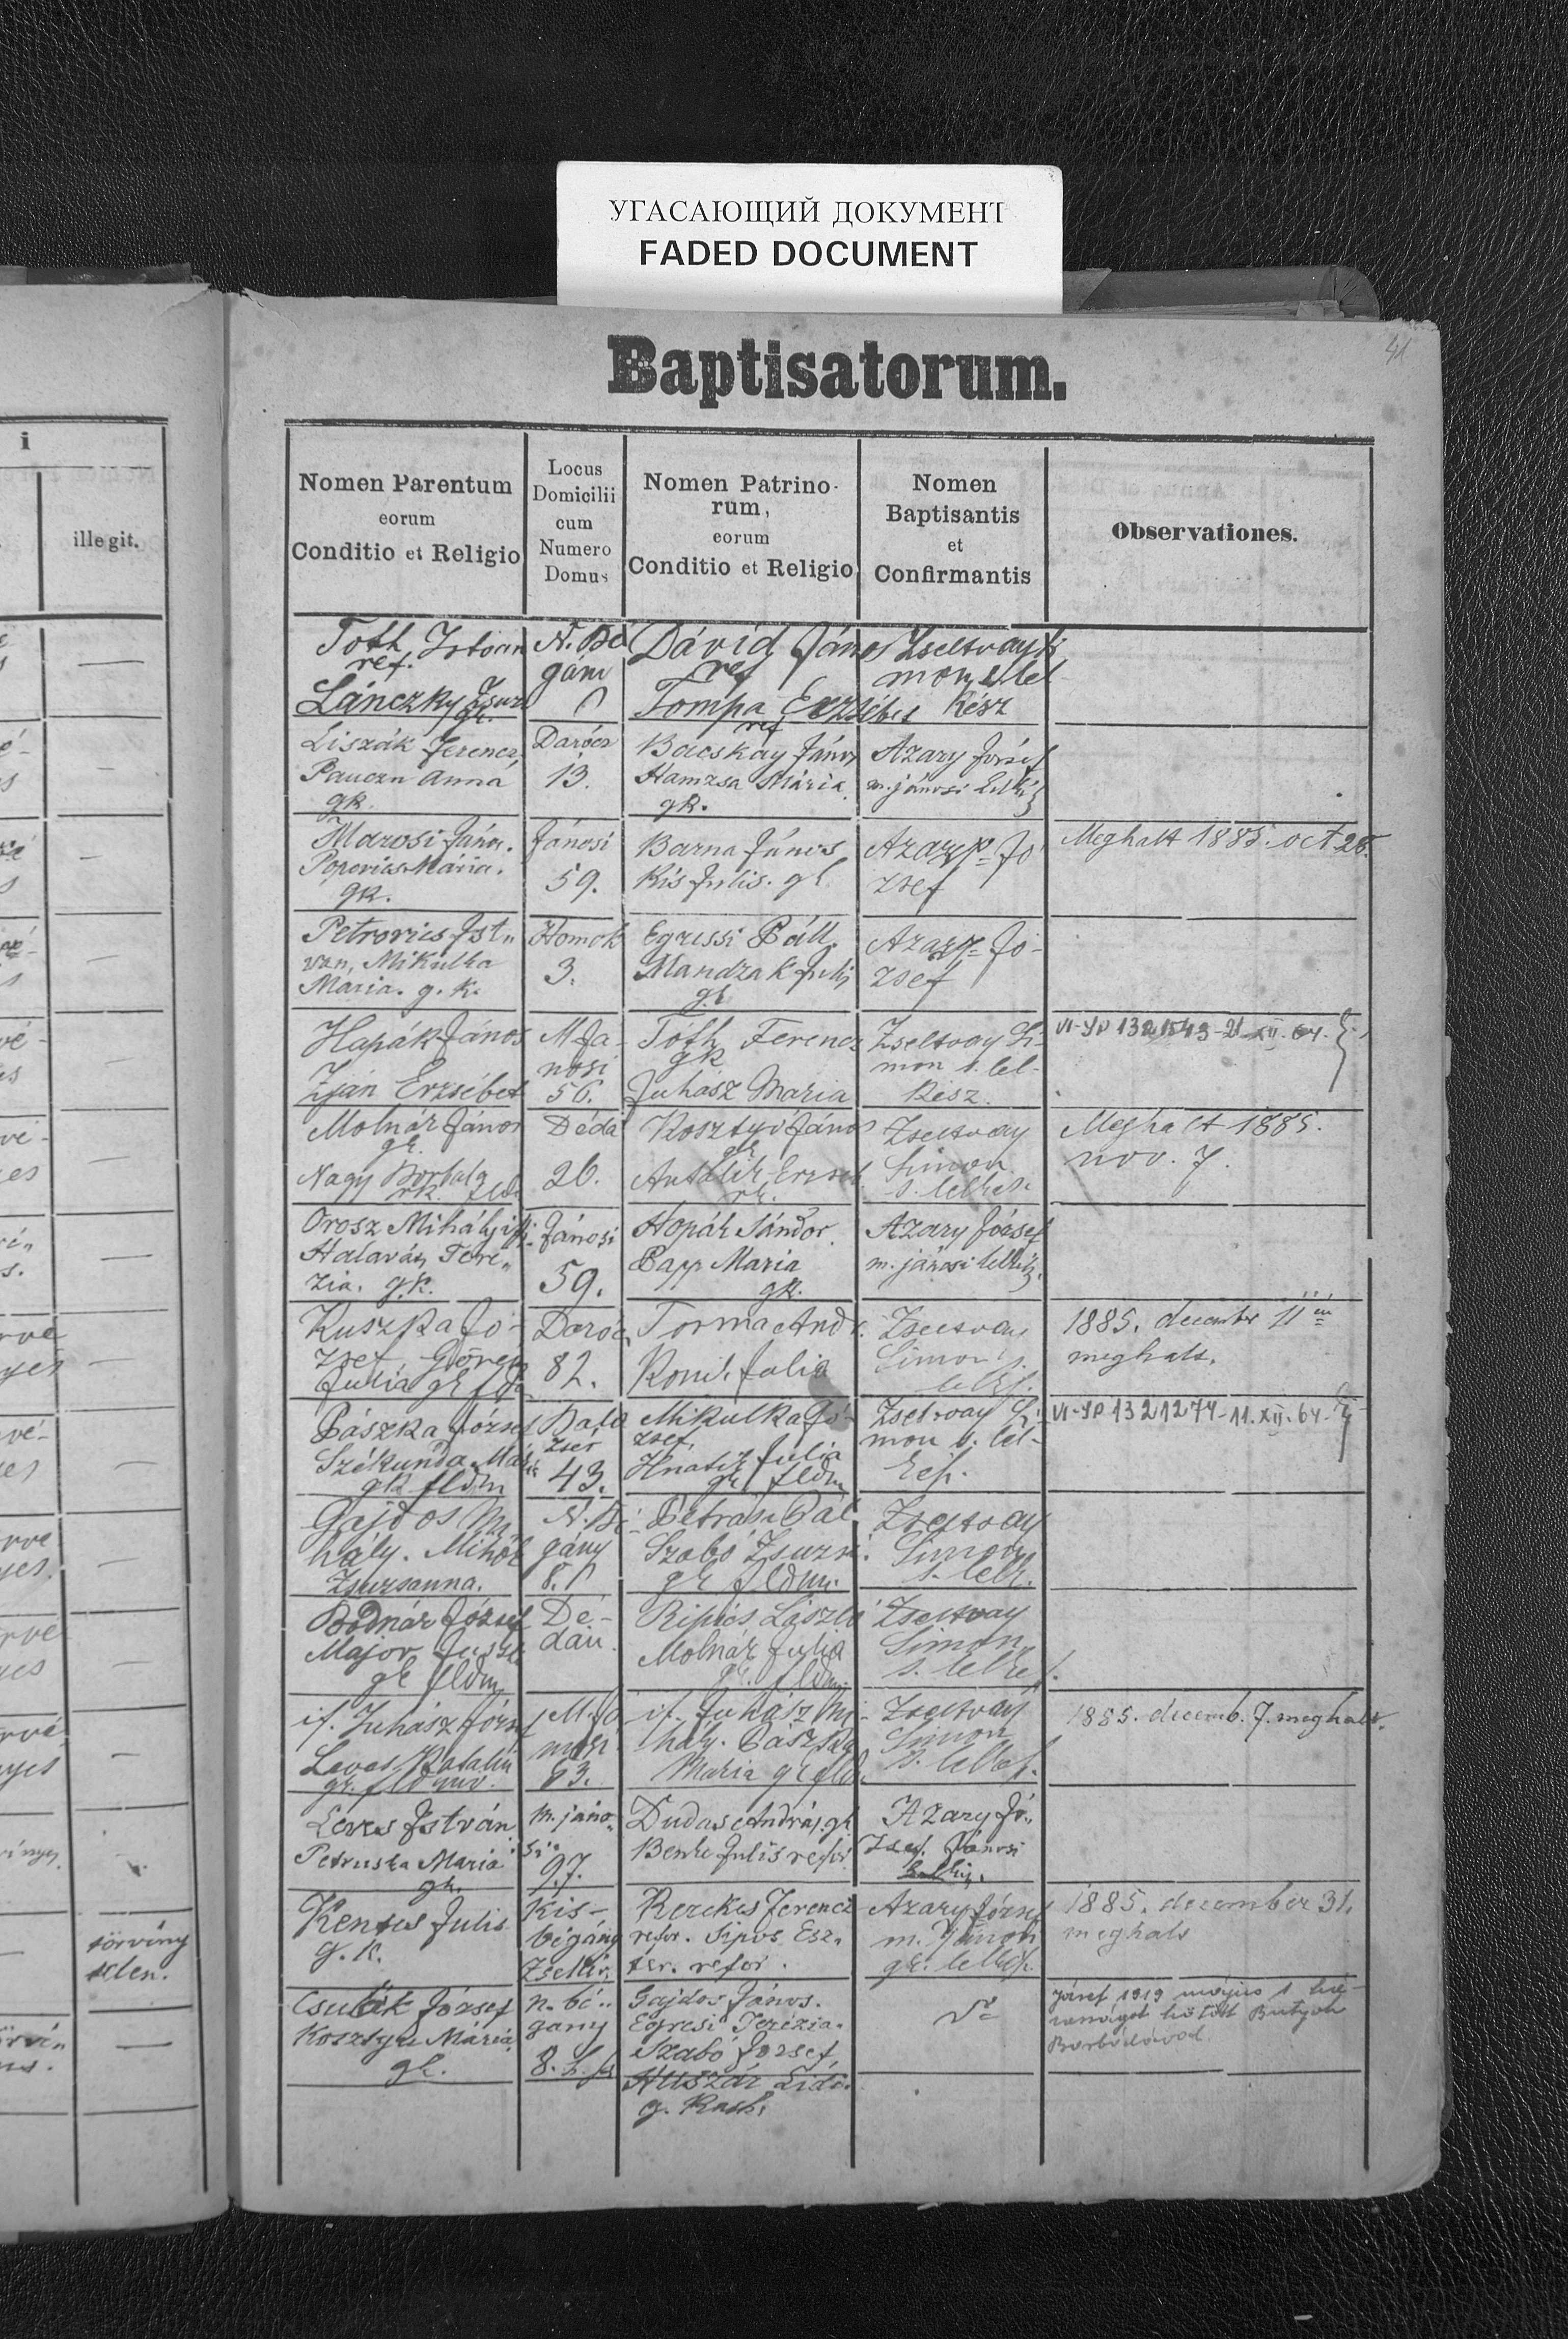 УГАСАЮЩИЙ ДОКУМЕНТ
FADED DOCUMENT
41
Baptisatorum.
i
illegit.
Nomen Parentum
eorum
Conditio et Religio
Locus
Domicilii
cum
Numero
Domus
Nomen Patrino-
rum,
eorum
Conditio et Religio
Nomen
Baptisantis
et
Confirmantis
Observationes.
Toth Istvan
ref.
Lánczky Zsuz
gk.
N. Bé
gány
Dávid János
ref
Tompa Erzsébet
ref
Zseltvay Si
mon s. lel
kész
Liszák Ferencz
Anna
gk.
Darócz
13.
Bacskay János
Hamzsa Mária
gk.
Azary József
m. jánosi
Marosi János.
Popovics Mária.
gk.
Jánosi
59.
Barna János
Kis Julis. gk
Azary Jó
zsef
Meghalt 1885. oct 28.
Petrovics Ist„
van, Mikulka
Maria. g. k.
Homok
3.
Egressi Páll.
Mandzak Julis
gk
Azary Jó-
zsef
Hapák János
Erzsébet
M Já-
nosi
56.
Tóth Ferencz
gk
Juhász Maria
Zseltvay Si-
mon s. lel-
kész.
VI-ЯР 1321543-21.XII.64.
Molnár János
gk.
Nagy Borbala
rk.
Déda
26.
Kosztyó János
gk
Antalik Erzseb
rk.
Zseltvay
Simon
s. lelkes.
Meghalt 1885.
nov. 7.
Orosz Mihály ifj.
Halavás Teré„
zia. gk.
Jánosi
59.
Hopák Sándor.
Papp Maria
gk.
Azary József
m. jánosi lelkész.
Kuszka Jó-
zsef
Julia gk
Darócz
82.
Torma Andr.
Julia
Zseltvay
Simon s.
1885. december 11én
meghalt.
Pászka József
Székunda Mária
gk fldm
43.
Mikulka Jó-
zsef,
Hnatik Julia
gk fldm
Zseltvay Si-
mon s. lel-
VI-ЯР 1321274-11.XII.64-
Gajdos Mi
hály. Mihók
Zsuzsanna.
N. Bé-
gány
8.
Petrási Pál
Szabó Zsuzsi
gk fldm.
Zseltvay
Simon
s. lelk.
Bodnár József
Major
gk fldm
Dé-
dán.
Ripics László
Molnár Julia
gk. fldm.
Zseltvay
Simon
s. lelkes.
if. Juhász József
Leves Katalin
gk.
M. Já
nosi
63.
if. Juhász Mi-
hály. Pászka
Maria gk fld.
Zseltvay
Simon
s. lelkes.
1885. decemb. 7. meghalt.
Leves István
Petruska Maria
gk.
m. jáno„
si.
97.
Dudas András. gk
Benke Julis refor
Azary Jó„
zsef. Jánosi
Kentes Julis
g. k.
Kis-
bégány
Zsellér.
Kerekes Ferencz
refor. Sipos Esz„
ter. refor.
Azary József
m. Jánosi
gk. lelkész.
1885. december 31.
meghalt
törvény
telen.
Csulák József
Kosztyu Mária
gk.
n. bé..
gany
8.
Gajdos János.
Egresi Terézia.
Szabó József,
Huszár Lidi.
g. Kath.
József 1919 május 1 há-
zasságot kötött